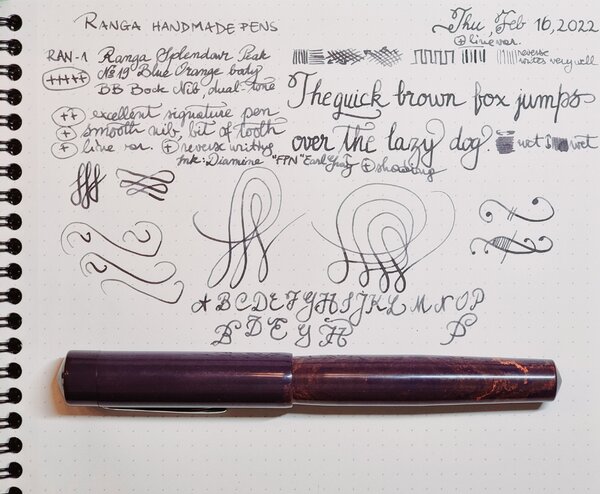 RANGA HANDMADE PENS
Thu, Feb 16, 2022
⊕ line var.
RAN-1 Ranga Splendour Peak
reverse
writes very well
№ 19 Blue Orange body
(+++++) BB Bock Nib, dual-tone
The quick brown fox jumps
(++) excellent signature pen
(+) smooth nib, bit of tooth
over the lazy dog. wet wet
(+) line var. (+) reverse writing
Ink: Diamine "FPN" Earl Grey (+) shading
A B C D E F G H I J K L M N O P
B D E G H P